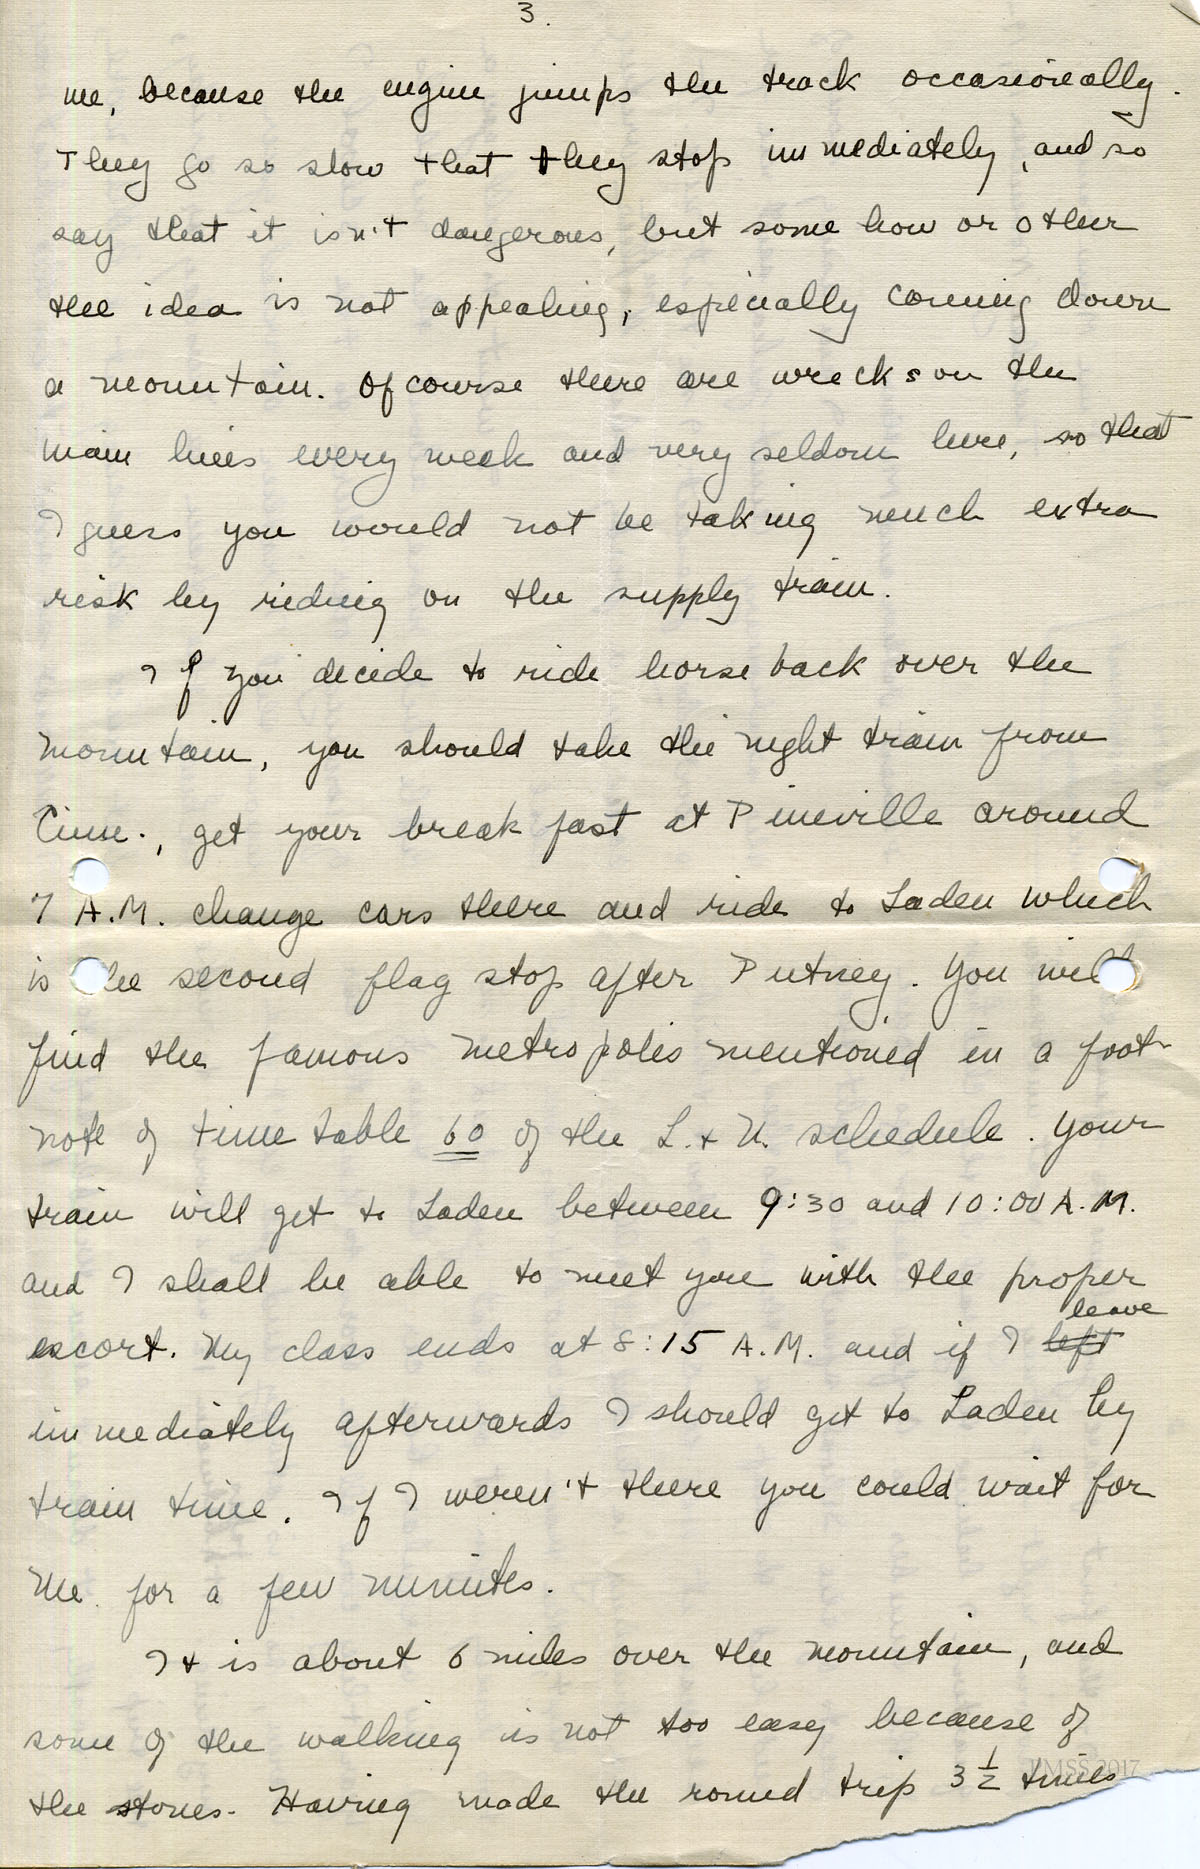 3.
me, because the engine jumps the track occasionally.
They go so slow that they stop immediately, and so
say that it isn't dangerous, but some how or other
the idea is not appealing, especially coming down
a mountain. Of course there are wrecks on the
main lines every week and very seldom here, so that
I guess you would not be taking much extra
risk by riding on the supply train.
If you decide to ride horse back over the
mountain, you should take the night train from
Cinn., get your breakfast at Pineville around
7 A.M. change cars there and ride to Laden which
is the second flag stop after Putney. You will
find the famous metropolis mentioned in a foot-
note of time table 60 of the L. & N. schedule. Your
train will get to Laden between 9:30 and 10:00 A.M.
and I shall be able to meet you with the proper
leave
escort. My class ends at 8:15 A.M. and if I left
immediately afterwards I should get to Laden by
train time. If I weren't there you could wait for
me for a few minutes.
It is about 6 miles over the mountain, and
some of the walking is not too easy because of
the stones. Having made the round trip 3 1/2 times
PMSS 2017